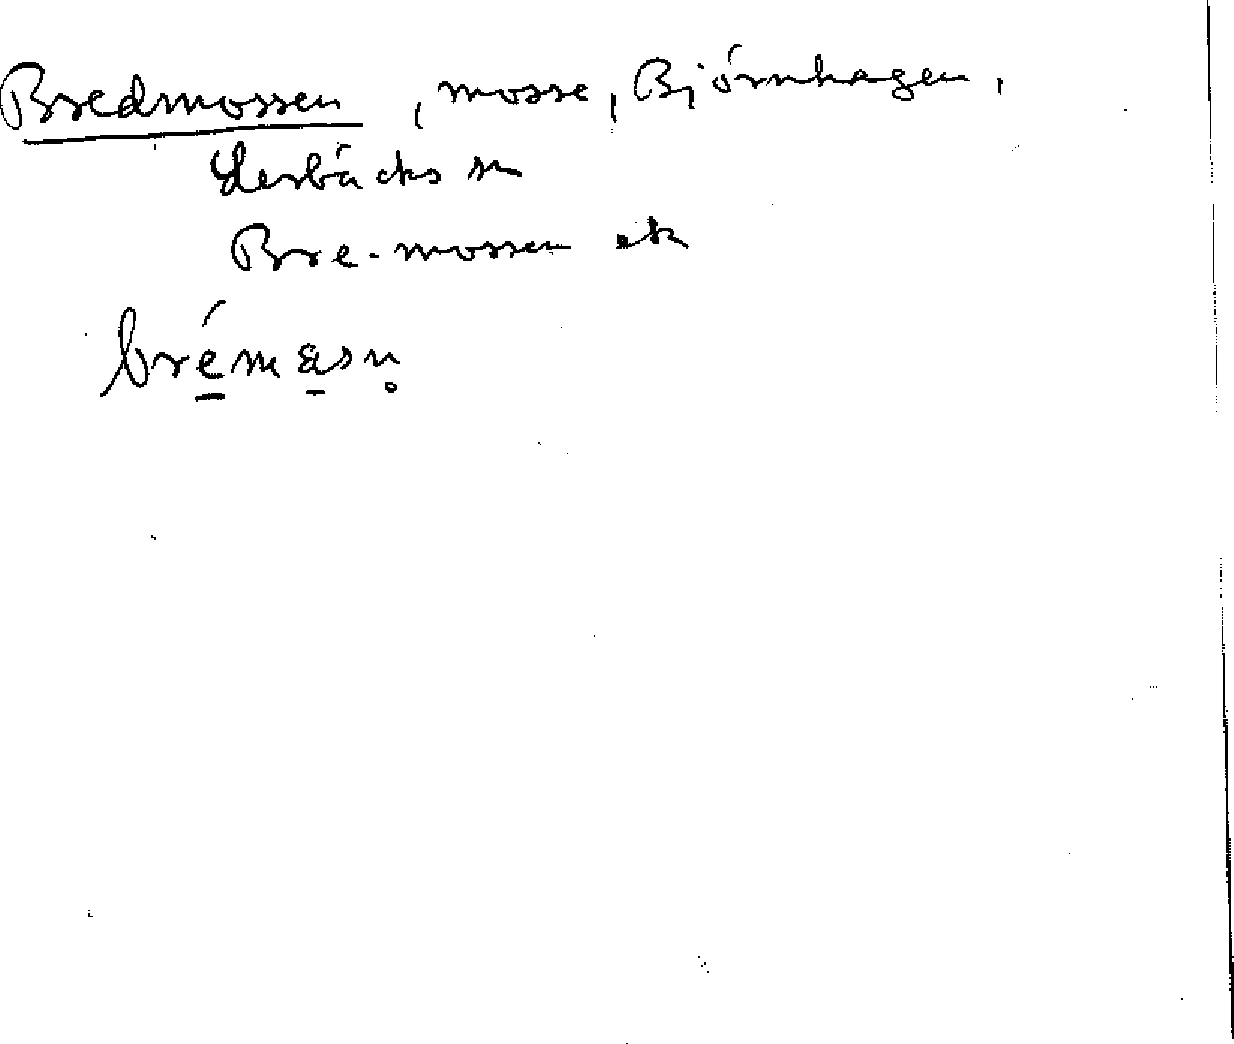 Bredmossen, mosse, Björnhagen,
Lerbäcks sn
Bre-mossen ek
brémåsn̥